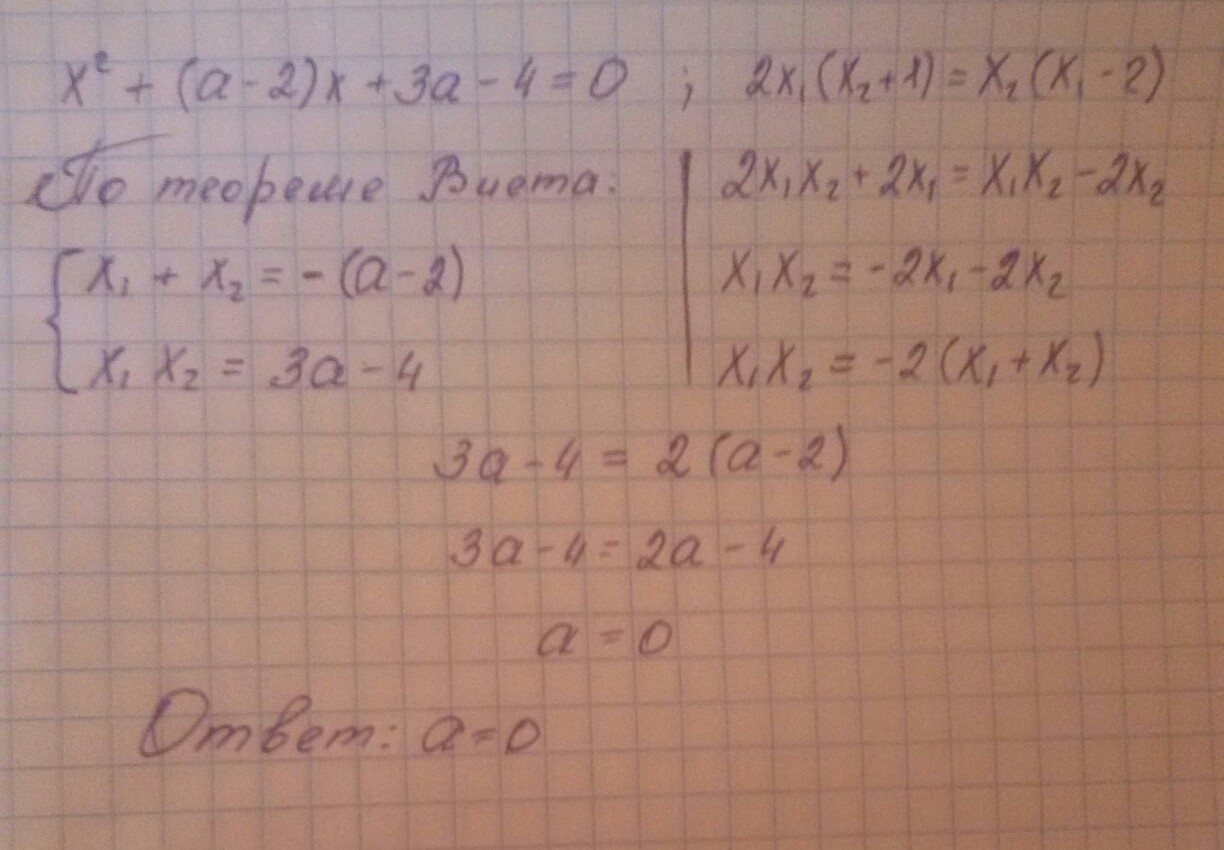 x² + (a-2)x + 3a - 4 = 0 ; 2x₁(x₂+1) = x₂(x₁-2)
По теореме Виета:
2x₁x₂ + 2x₁ = x₁x₂ - 2x₂
{ x₁ + x₂ = -(a-2)
x₁x₂ = -2x₁ - 2x₂
x₁ x₂ = 3a - 4
x₁x₂ = -2(x₁+x₂)
3a - 4 = 2(a-2)
3a - 4 = 2a - 4
a = 0
Ответ: a=0